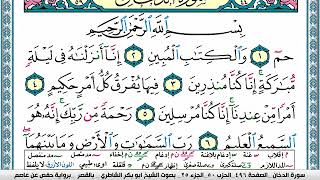 بِسْمِ ٱللَّهِ ٱلرَّحْمَٰنِ ٱلرَّحِيمِ
حمٓ ١ وَٱلْكِتَٰبِ ٱلْمُبِينِ ٢ إِنَّآ أَنزَلْنَٰهُ فِى لَيْلَةٍ
مُّبَٰرَكَةٍ إِنَّا كُنَّا مُنذِرِينَ ٣ فِيهَا يُفْرَقُ كُلُّ أَمْرٍ حَكِيمٍ ٤
أَمْرًا مِّنْ عِندِنَآ إِنَّا كُنَّا مُرْسِلِينَ ٥ رَحْمَةً مِّن رَّبِّكَ إِنَّهُۥ هُوَ
ٱلسَّمِيعُ ٱلْعَلِيمُ ٦ رَبِّ ٱلسَّمَٰوَٰتِ وَٱلْأَرْضِ وَمَا بَيْنَهُمَآ
سورة الدخان الصفحة ٤٩٦ الحزب ٥٠ الجزء ٢٥ بصوت الشيخ أبو بكر الشاطري بالقصر برواية حفص عن عاصم